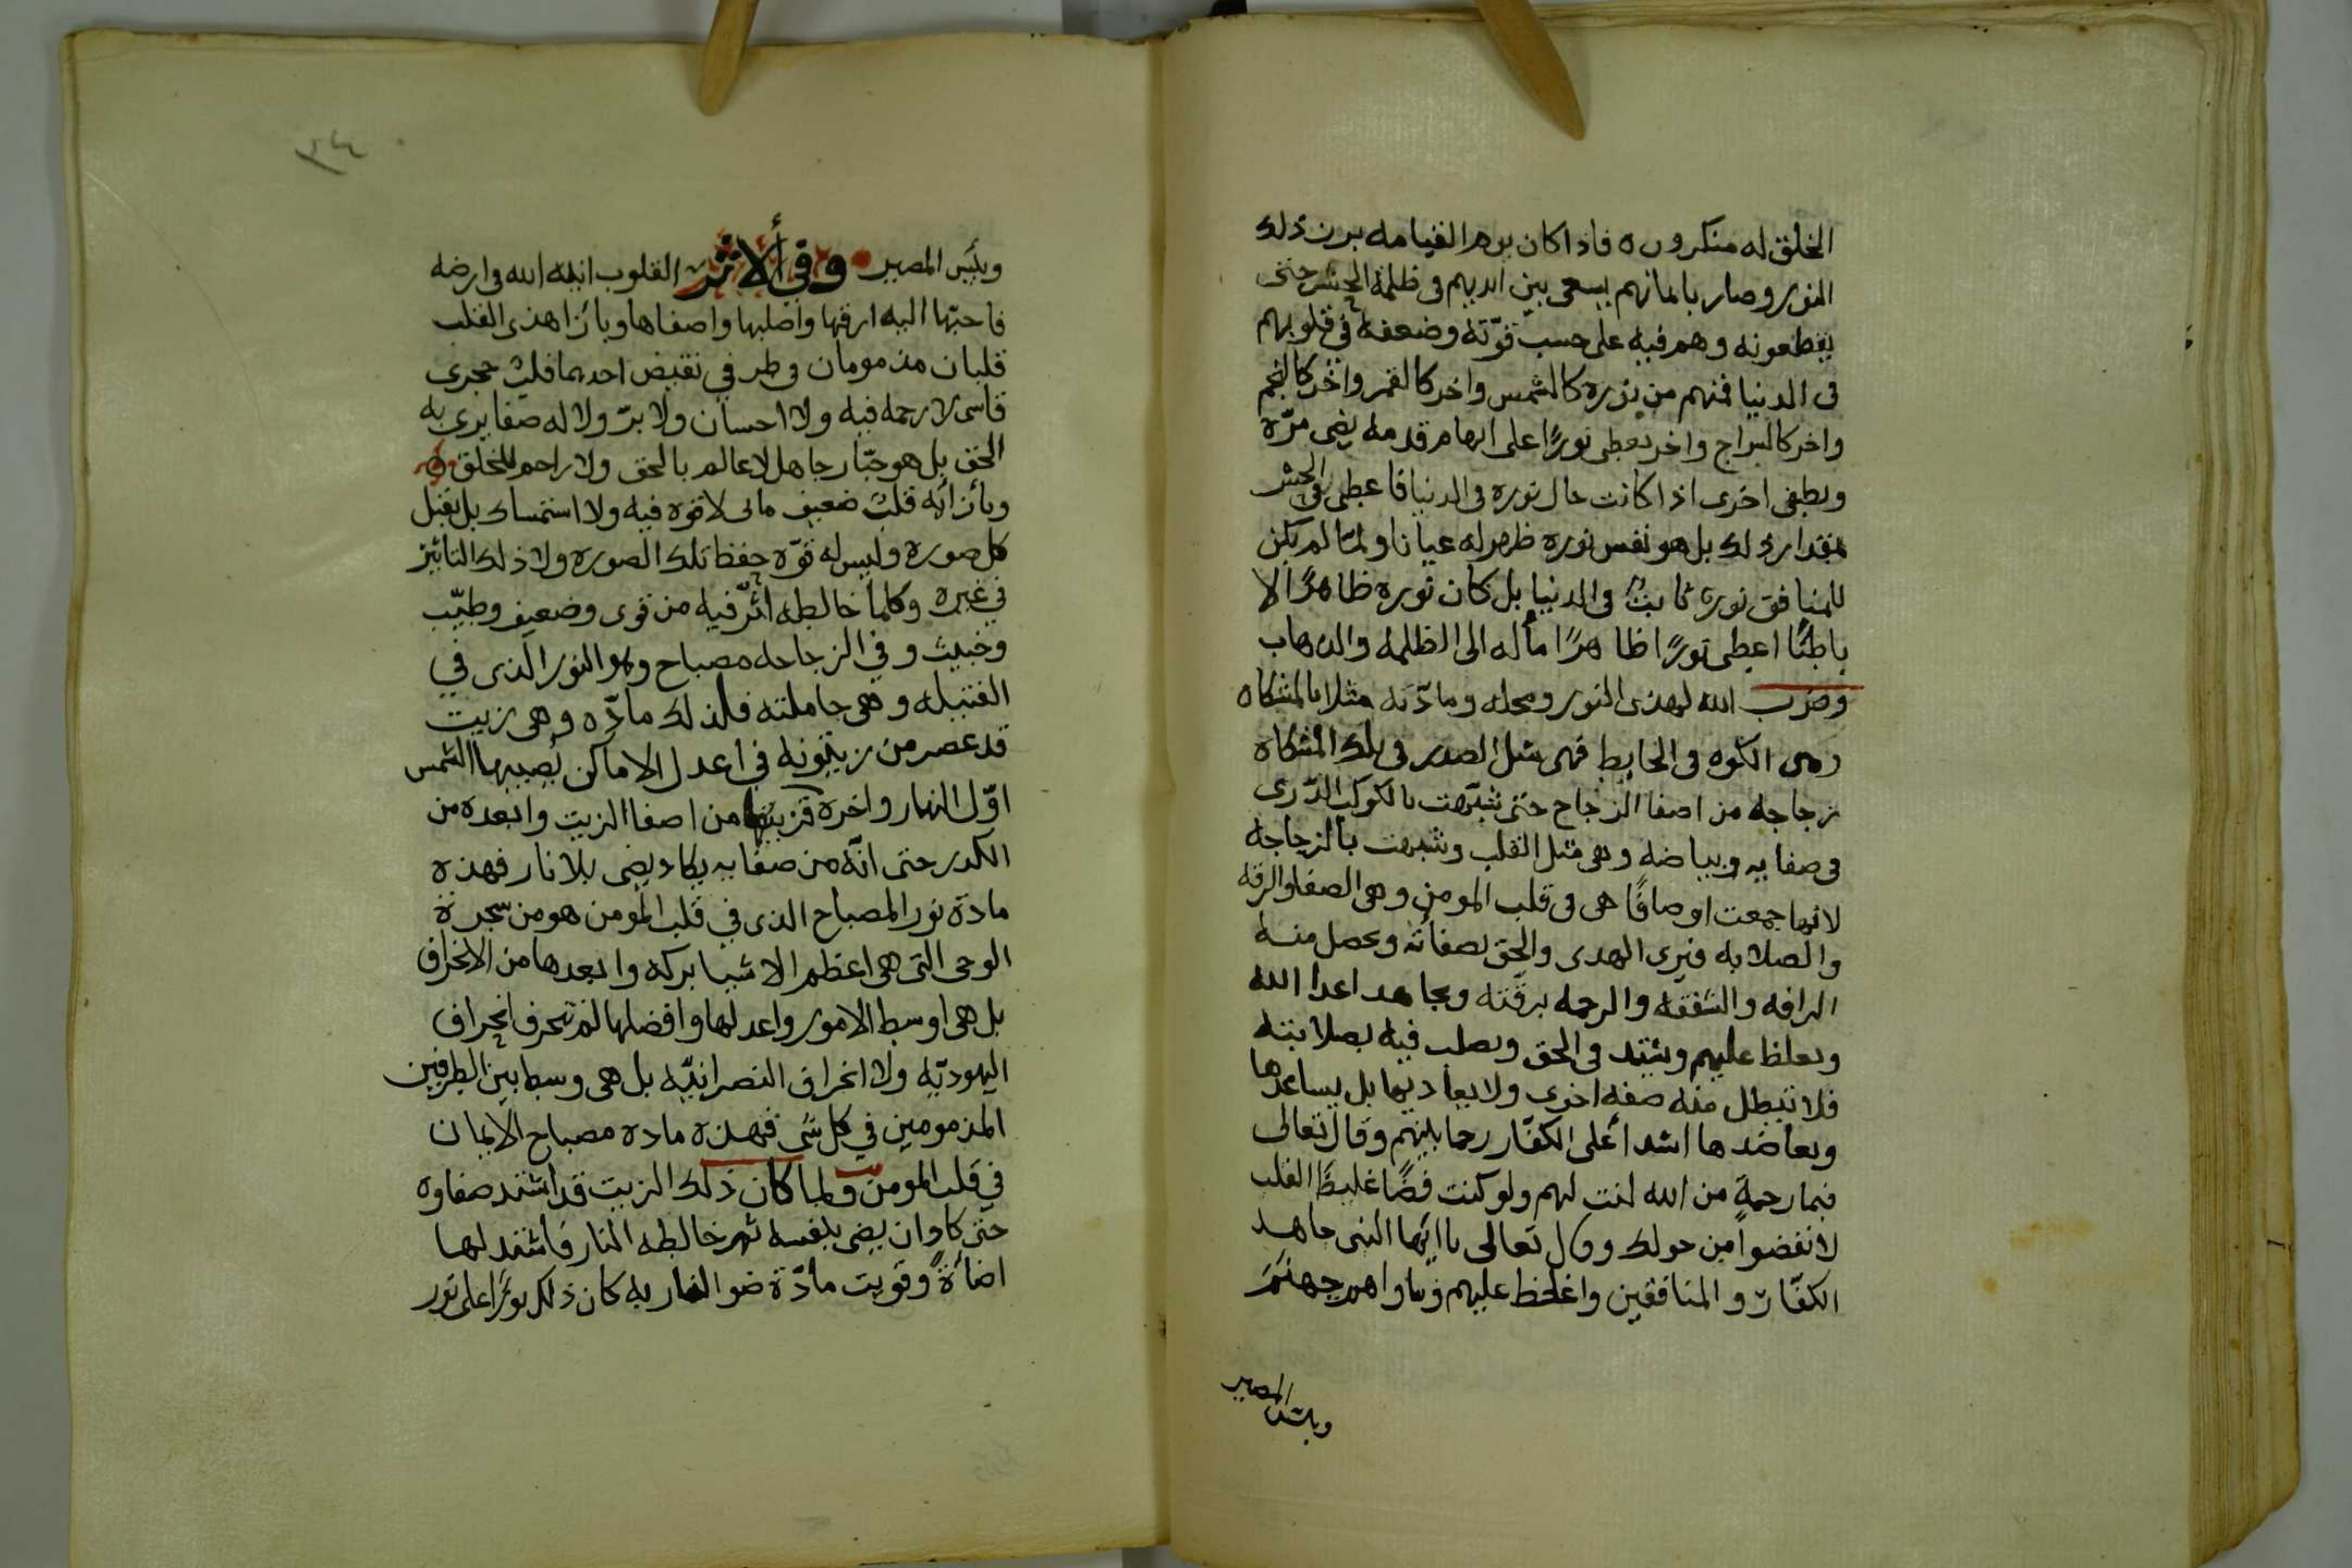 الخلق له منكرون ه فاذا كان يوم القيامه برز ذلك
النور وصار بايمانهم يسعى بين ايديهم فى ظلمة الجسر حتى
يقطعونه وهم فيه على حسب قوّته وضعفه في قلوبهم
فى الدنيا فمنهم من نوره كالشمس واخر كالقمر واخر كالنجم
واخر كالسراج واخر يعطى نورًا على ابهام قدمه يضى مرّة
ويطفى اخرى اذا كانت حال نوره فى الدنيا فاعطى فى الجسر
بمقدار ذلك بل هو نفس نوره ظهر له عيانا ولما لم يكن
للمنافق نور ثابت فى الدنيا بل كان نوره ظاهرًا لا
باطنًا اعطى نورًا ظاهرًا مأله الى الظلمه والدهاب
وضرب الله لهذى النور ومحله ومادّته مثلا بالمشكاه
وهى الكوه فى الحايط فهى مثل الصدر فى تلك المشكاه
زجاجه من اصفا الزجاج حتى شبّهت بالكوكب الدّرى
فى صفايه وبياضه وهى مثل القلب وشبهت بالزجاجه
لانها جمعت اوصافًا هى فى قلب المومن وهى الصفا والرقه
والصلابه فيرى الهدى والحق بصفائه ويحصل منه
الرافه والشفقه والرحمه برقّته ويجاهد اعدا الله
ويغلظ عليهم ويشتد فى الحق ويصلب فيه بصلابته
فلا تبطل منه صفه اخرى ولا يعاديها بل يساعدها
ويعاضدها اشدا على الكفّار رحما بينهم وقال تعالى
فبما رحمةٍ من الله لنت لهم ولو كنت فضًا غليظًا القلب
لانفضوا من حولك وقال تعالى ياايّها النبى جاهد
الكفّار والمنافقين واغلظ عليهم وماواهم جهنّم
وبئس المصير
٣٤
وبئس المصير وفي ألاثر القلوب انيه الله فى ارضه
فاحبّها اليه ارقها واصلبها واصفاها وبازا هذى القلب
قلبان مذمومان فى طرفي نقيض احدهما قلب حجرى
قاسى لا رحمه فيه ولا احسان ولا برّ ولا له صفا يرى به
الحق بل هو جبّار جاهل لا عالم بالحق ولا راحم للخلق ه
وبازائه قلب ضعيف مائى لا قوه فيه ولا استمساك بل يقبل
كل صوره وليس له قوّه حفظ تلك الصوره ولا ذلك التاثير
في غيره وكلما خالطه اثّر فيه من قوى وضعيف وطيّب
وخبيث وفي الزجاجه مصباح وهو النور الذى في
الفتيله وهى حاملته فلذلك مادّه وهى زيت
قد عصر من زيتونه في اعدل الاماكن تصيبها الشمس
اوّل النهار واخره فزيتها من اصفا الزيت وابعده من
الكدر حتى انّه من صفايه يكاد يضى بلا نار فهذه
مادة نور المصباح الذى في قلب المومن هو من شجرة
الوحى التى هى اعظم الاشيا بركه وابعدها من الانحراف
بل هى اوسط الامور واعدلها وافضلها لم تنحرف انحراف
اليهوديّه ولا انحراف النصرانيّه بل هى وسط بين الطرفين
المذمومين في كل شى فهذه ماده مصباح الايمان
في قلب المومن ولما كان ذلك الزيت قد اشتد صفاوه
حتى كاد ان يضى بنفسه ثم خالطه النار فاشتد لها
اضأةً وقويت مادّة ضو النار به كان ذلك نورًا على نور